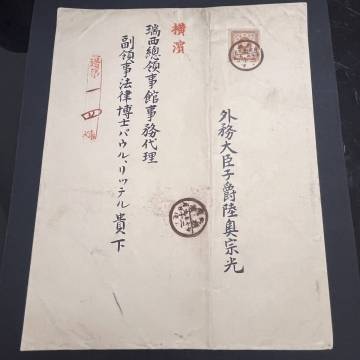 外務大臣子爵陸奥宗光
横濱
瑞西總領事館事務代理
副領事法律博士パウル、リッテル貴下
一四